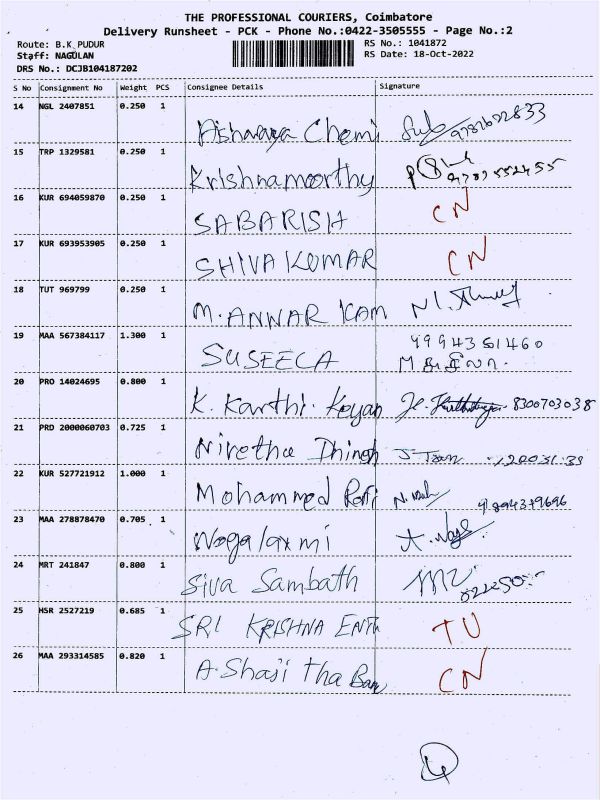 THE PROFESSIONAL COURIERS, Coimbatore
Delivery Runsheet - PCK - Phone No.:0422-3505555 - Page No.:2
Route: B.K PUDUR
Staff: NAGULAN
DRS No.: DCJB104187202
RS No.: 1041872
RS Date: 18-Oct-2022
S No Consignment No Weight PCS Consignee Details Signature
14 NGL 2407851 0.250 1 Chemi
15 TRP 1329581 0.250 1 Krishnamoorthy
16 KUR 694059870 0.250 1 SABARISH CN
17 KUR 693953905 0.250 1 SHIVA KUMAR CN
18 TUT 969799 0.250 1 M. ANWAR KAM
19 MAA 567384117 1.300 1 SUSEELA 9994351460
20 PRO 14024695 0.800 1 K. Karthi. Keyan 8300703038
21 PRD 2000060703 0.725 1 Nivetha Dhinesh
22 KUR 527721912 1.000 1 Mohammed Rafi
23 MAA 278878470 0.705 1 Nagalaxmi
24 MRT 241847 0.800 1 Siva Sambath
25 HSR 2527219 0.685 1 SRI KRISHNA TU
26 MAA 293314585 0.820 1 A. Shaji Tha CN